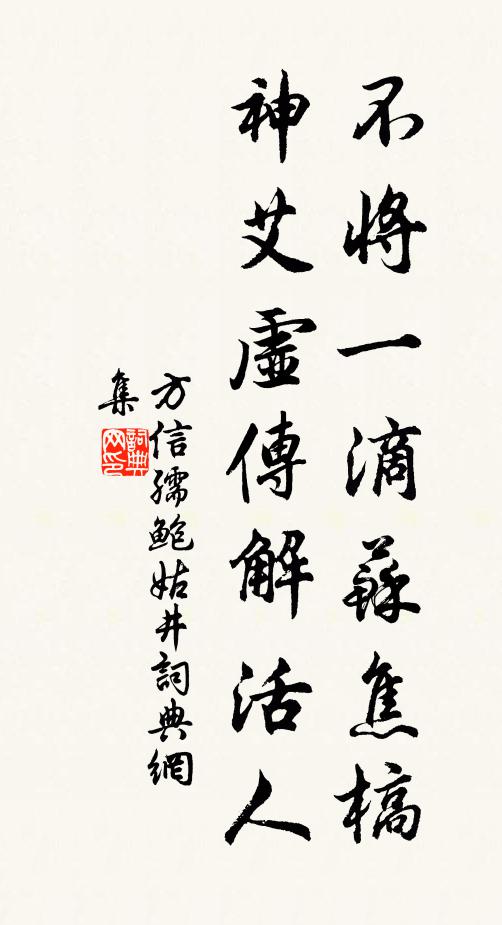 不將一滴蘇焦槁
神艾虛傳解活人
方信孺鮑姑井詞典網
集
詞典
网印